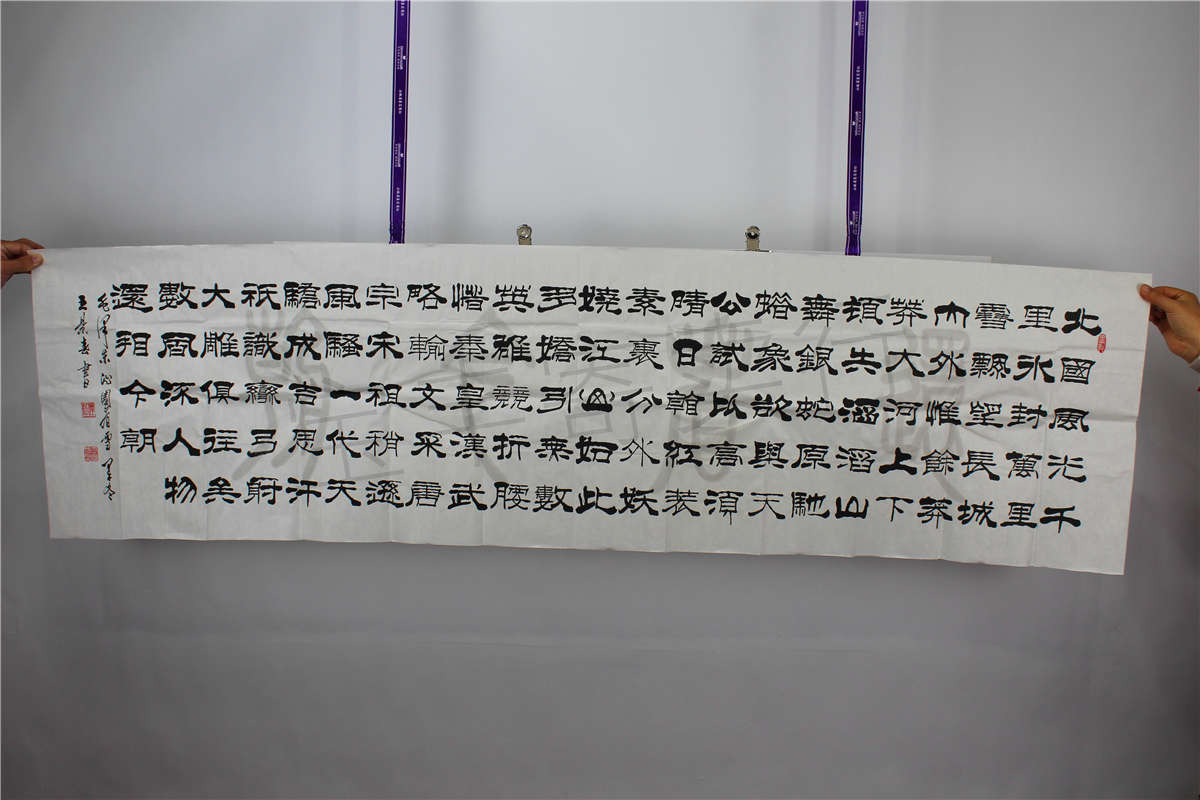 北國風光千
里冰封萬里
雪飄望長城
内外惟餘莽
莽大河上下
頓失滔滔山
舞銀蛇原馳
蠟象欲與天
公試比高須
晴日看紅装
素裹分外妖
嬈江山如此
多嬌引無數
英雄競折腰
惜秦皇漢武
略輸文采唐
宗宋祖稍遜
風騷一代天
驕成吉思汗
祇識彎弓射
大雕俱往矣
數風流人物
還看今朝
毛澤東沁園春雪
王景春書